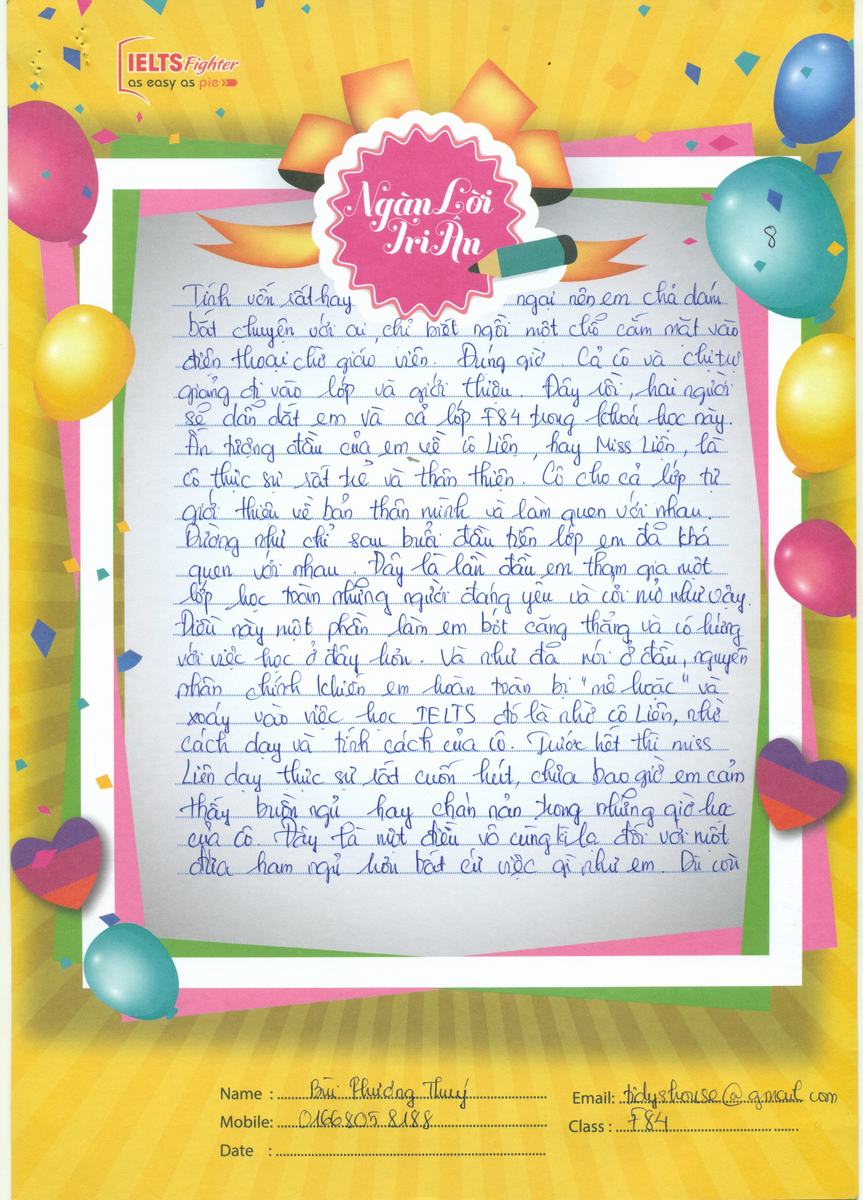 IELTS Fighter
as easy as pie
Ngàn Lời
Tri Ân
8
Tính vốn rất hay ngại nên em chả dám
bắt chuyện với ai, chỉ biết ngồi một chỗ cắm mặt vào
điện thoại chờ giáo viên. Đúng giờ. Cả cô và chị trợ
giảng đi vào lớp và giới thiệu. Đây rồi, hai người
sẽ dẫn dắt em và cả lớp F84 trong khoá học này.
Ấn tượng đầu của em về cô Liên, hay Miss Liên, là
cô thực sự rất trẻ và thân thiện. Cô cho cả lớp tự
giới thiệu về bản thân mình và làm quen với nhau.
Dường như chỉ sau buổi đầu tiên lớp em đã khá
quen với nhau. Đây là lần đầu em tham gia một
lớp học toàn những người đáng yêu và cởi mở như vậy.
Điều này một phần làm em bớt căng thẳng và có hứng
với việc học ở đây hơn. Và như đã nói ở đầu, nguyên
nhân chính khiến em hoàn toàn bị "mê hoặc" và
xoáy vào việc học IELTS đó là nhờ cô Liên, nhờ
cách dạy và tính cách của cô. Trước hết thì miss
Liên dạy thực sự rất cuốn hút, chưa bao giờ em cảm
thấy buồn ngủ hay chán nản trong những giờ học
của cô. Đây là một điều vô cùng kì lạ đối với một
đứa ham ngủ hơn bất cứ việc gì như em. Dù còn
Name : Bùi Phương Thuý
Email: tidyshouse@gmail.com
Mobile: 01668058188
Class : F84
Date :